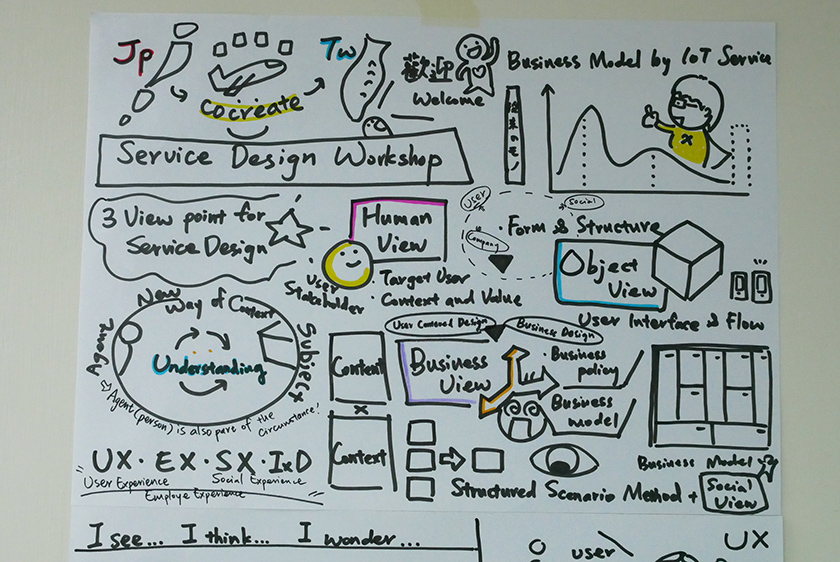 Jp
Tw
cocreate
歓迎
Welcome
Business Model by IoT Service
従来のモノ
Service Design Workshop
3 View point for
Service Design
Human
View
User
Stakeholder
・Target User
・Context and Value
User
Social
Company
・Form & Structure
Object
View
User Interface & Flow
New
Way of Context
Agent
Subject
Understanding
Agent (person) is also part of the
circumstance!
Context
×
Context
User Centered Design
Business Design
Business
View
・Business
policy
Business
model
UX・EX・SX・IxD
User Experience
Social Experience
Employe Experience
Structured Scenario Method +
Business Model
Social
View
I see... I think... I wonder...
user
UX